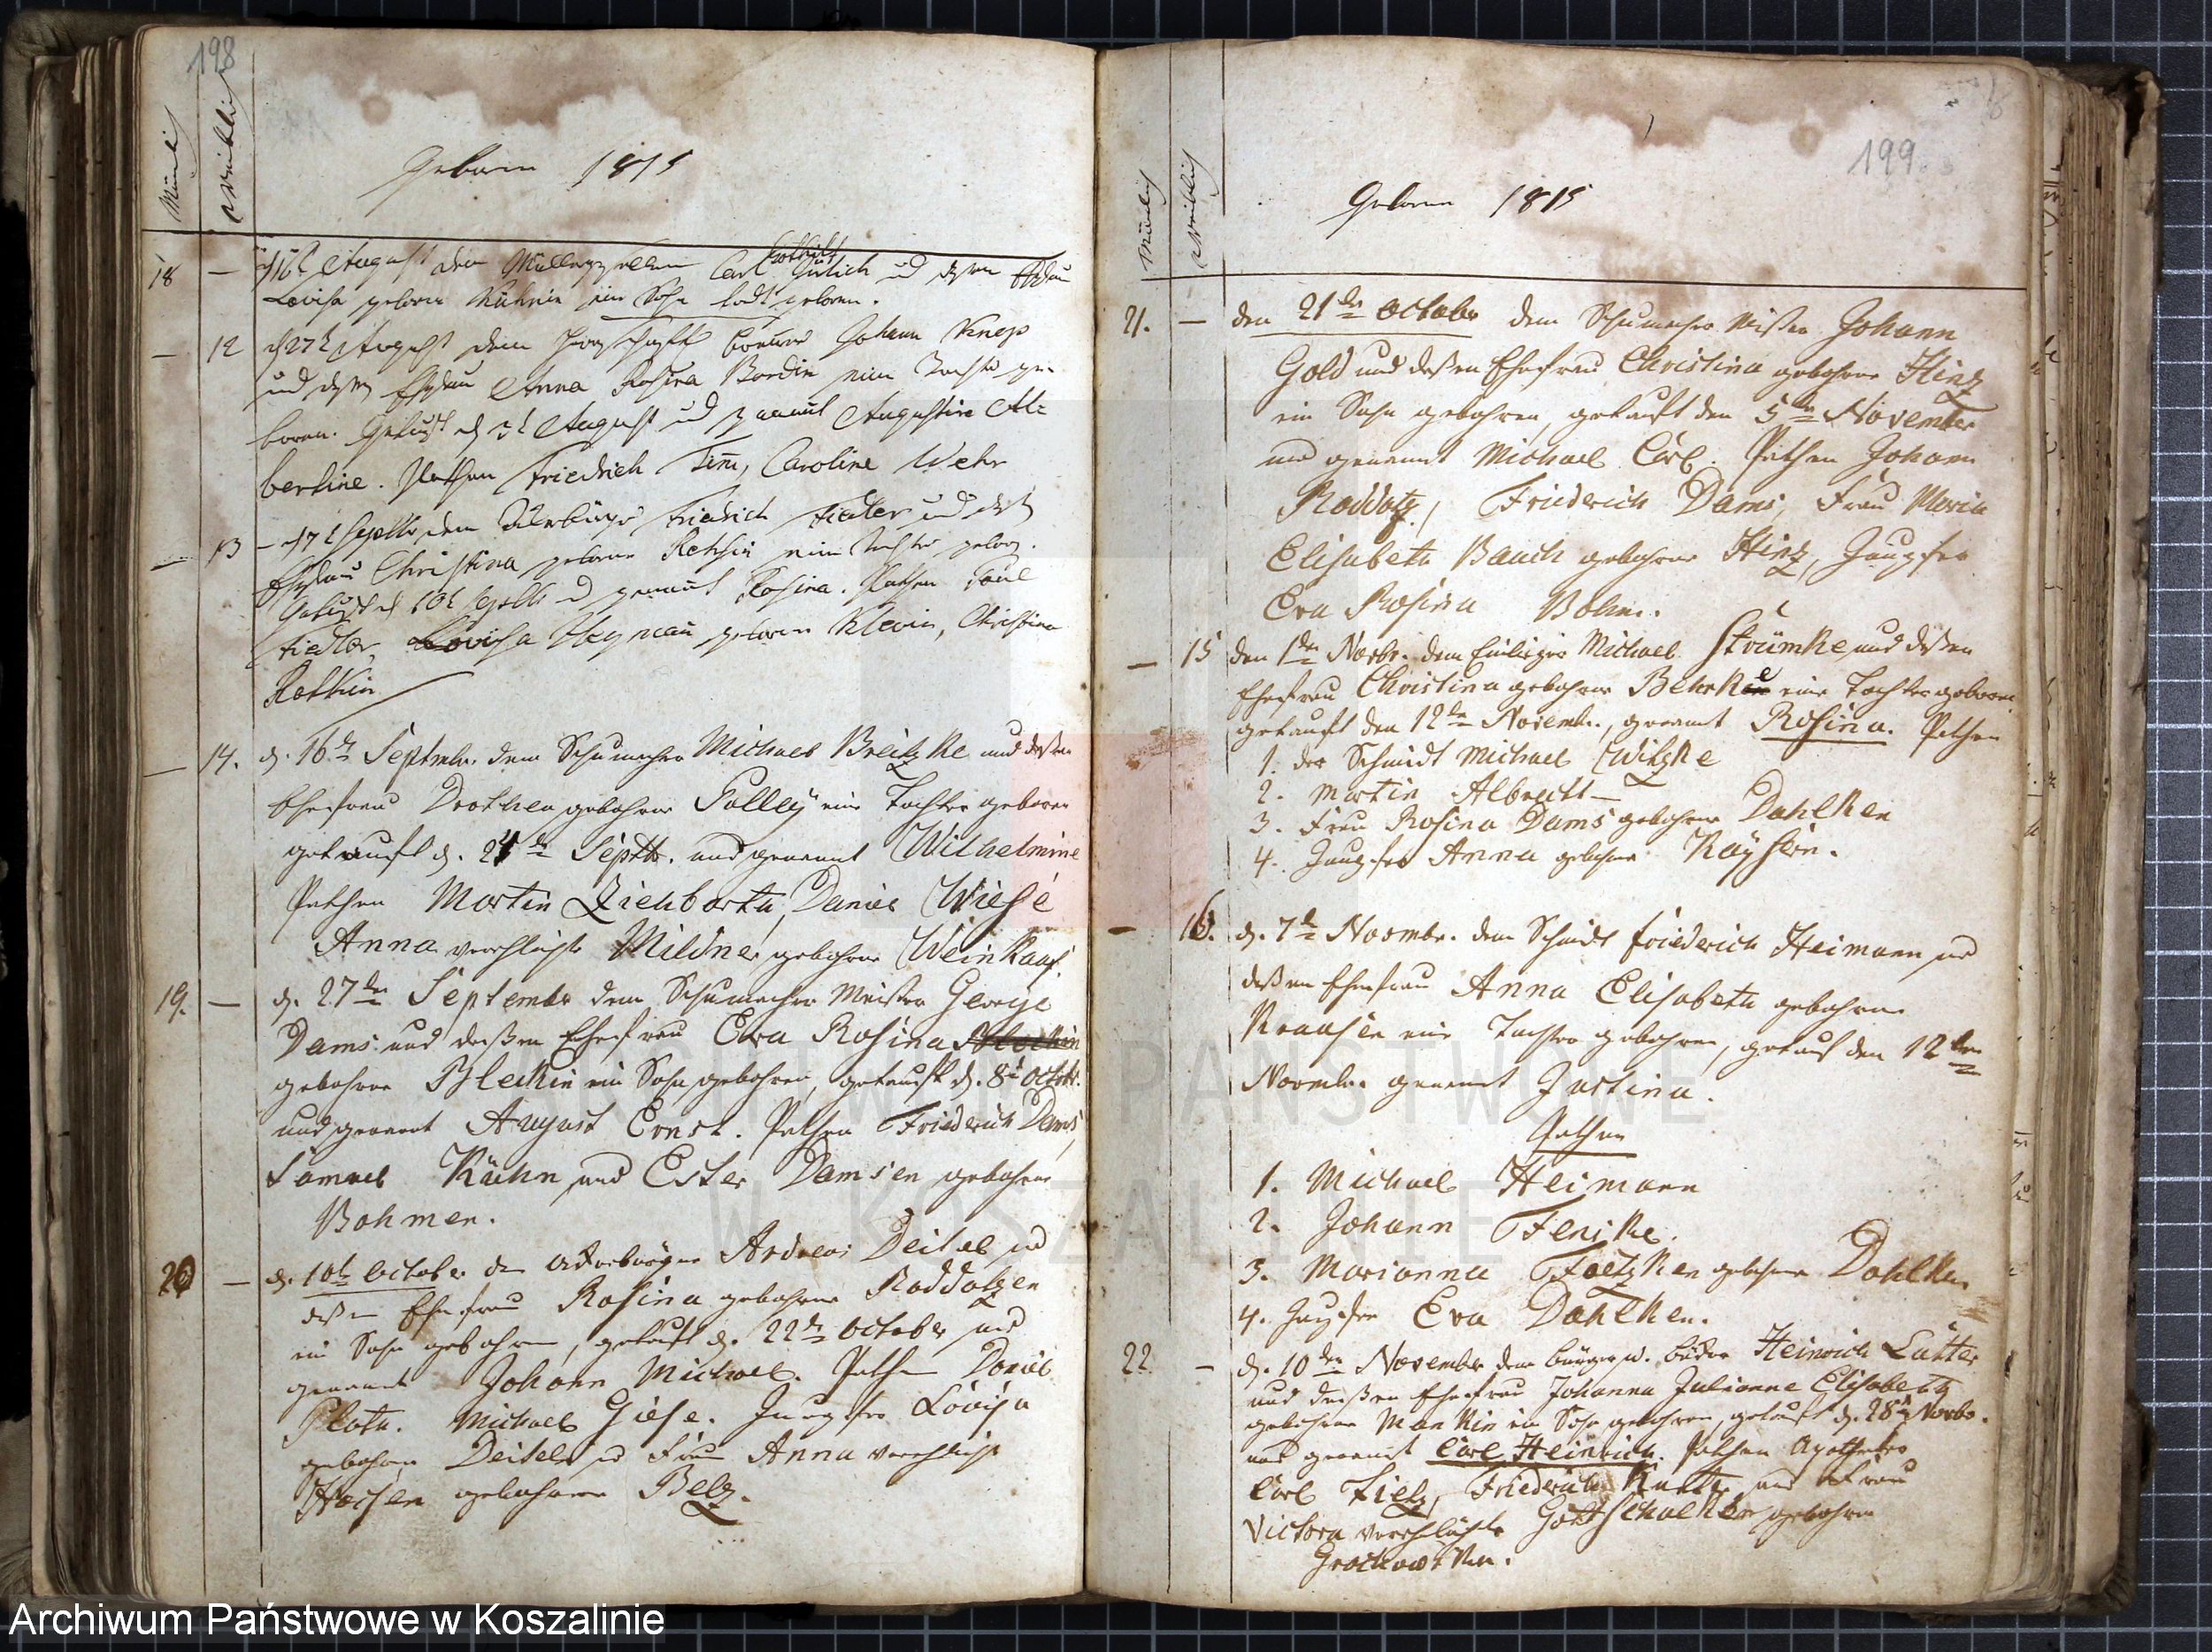 198
Männlich
weiblich
Geboren 1815
18 — August dem Müllergesellen Carl Gottlieb Gurlich und dessen Ehefrau
Lovisa geboren Kühnin ein Sohn todt geboren.
— 12 d 27t August dem Johann Knep
und dessen Ehefrau Anna Rosina Bordin eine Tochter ge-
boren. Getauft d 3t August und genannt Augustine Al-
bertine. Pathen Friedrich Timm, Caroline Wehr
— 13 — d 7t Septbr dem Ackerbürger Friedrich Fiedler und dessen
Ehefrau Christina geborne Rethin eine Tochter geboren.
Getauft d 10t Septbr und genannt Rosina. Pathen Paul
Fiedler, Lovisa Heyman geboren Klevin, Christina
Rothin
— 14. d. 16te Septmbr. dem Schumacher Michael Breitzke und deßen
Ehefrau Dorothea gebohrne Polley eine Tochter geboren
getauft d. 24te Septb. und genannt Wilhelmine
Pathen Martin Ziehbarth, Daniel Wiese
Anna verehlichte Mildner gebohrne Weinkauf.
19. — d. 27te September dem Schumacher Meister George
Dams und deßen Ehefrau Eva Rosina
gebohrne Bleckin ein Sohn gebohren, getauft d. 8t Octob.
und genannt August Ernst. Pathen Friederich Dams,
Samuel Kühn und Ester Damsen gebohrne
Bohmen.
20 — d. 10te October dem Ackerbürger Andreas Deitel und
deßen Ehefrau Rosina gebohrne Raddatzen
ein Sohn gebohren, getauft d. 22te October und
genannt Johann Michael. Pathen Daniel
Plath. Michael Giese. Jungfer Lovisa
gebohrne Deitel und Frau Anna verehlichte
gebohrne Belz.
199.
Männlich
weiblich
Geboren 1815
21. — den 21ten October dem Schumacher Meister Johann
Gold und deßen Ehefrau Christina gebohrne Hinz
ein Sohn gebohren, getauft den 5ten November
und genannt Michael Carl. Pathen Johann
Raddatz, Friederich Dams, Frau Maria
Elisabeth Bauch gebohrne Hinz, Jungfer
Eva Rosina Bohm.
— 15 den 1ten Novbr. dem Einlieger Michael Strümke und deßen
Ehefrau Christina gebohrne Behrke eine Tochter geboren
getauft den 12ten Novembr., genannt Rosina. Pathen
1. der Schmidt Michael Witzke
2. Martin Albrecht —
3. Frau Rosina Dams gebohrne Dahlken
4. Jungfer Anna gebohrne Kayserin.
— 16. d. 7te Novmbr. dem Schmidt Friederich Heimann und
deßen Ehefrau Anna Elisabeth gebohrne
Krausen eine Tochter gebohren, getauft den 12ten
Novmbr. genannt Justina.
Pathen
1. Michael Heimann
2. Johann Fenske.
3. Marianna Faetzken gebohrne Dahlken
4. Jungfer Eva Dahlken.
22 — d. 10ten November dem Bürger u. Heinrich Lütter
und deßen Ehefrau Johanna Julianne Elisabeth
gebohrne Mankin ein Sohn gebohren, getauft d. 28t Novbr.
und genannt Carl Heinrich. Pathen Apotheker
Carl Fietz, Friederich Kutter und Frau
Victora verehlichte Gottschalken gebohrne
Grochowsken.
ARCHIWUM PAŃSTWOWE
W KOSZALINIE
Archiwum Państwowe w Koszalinie